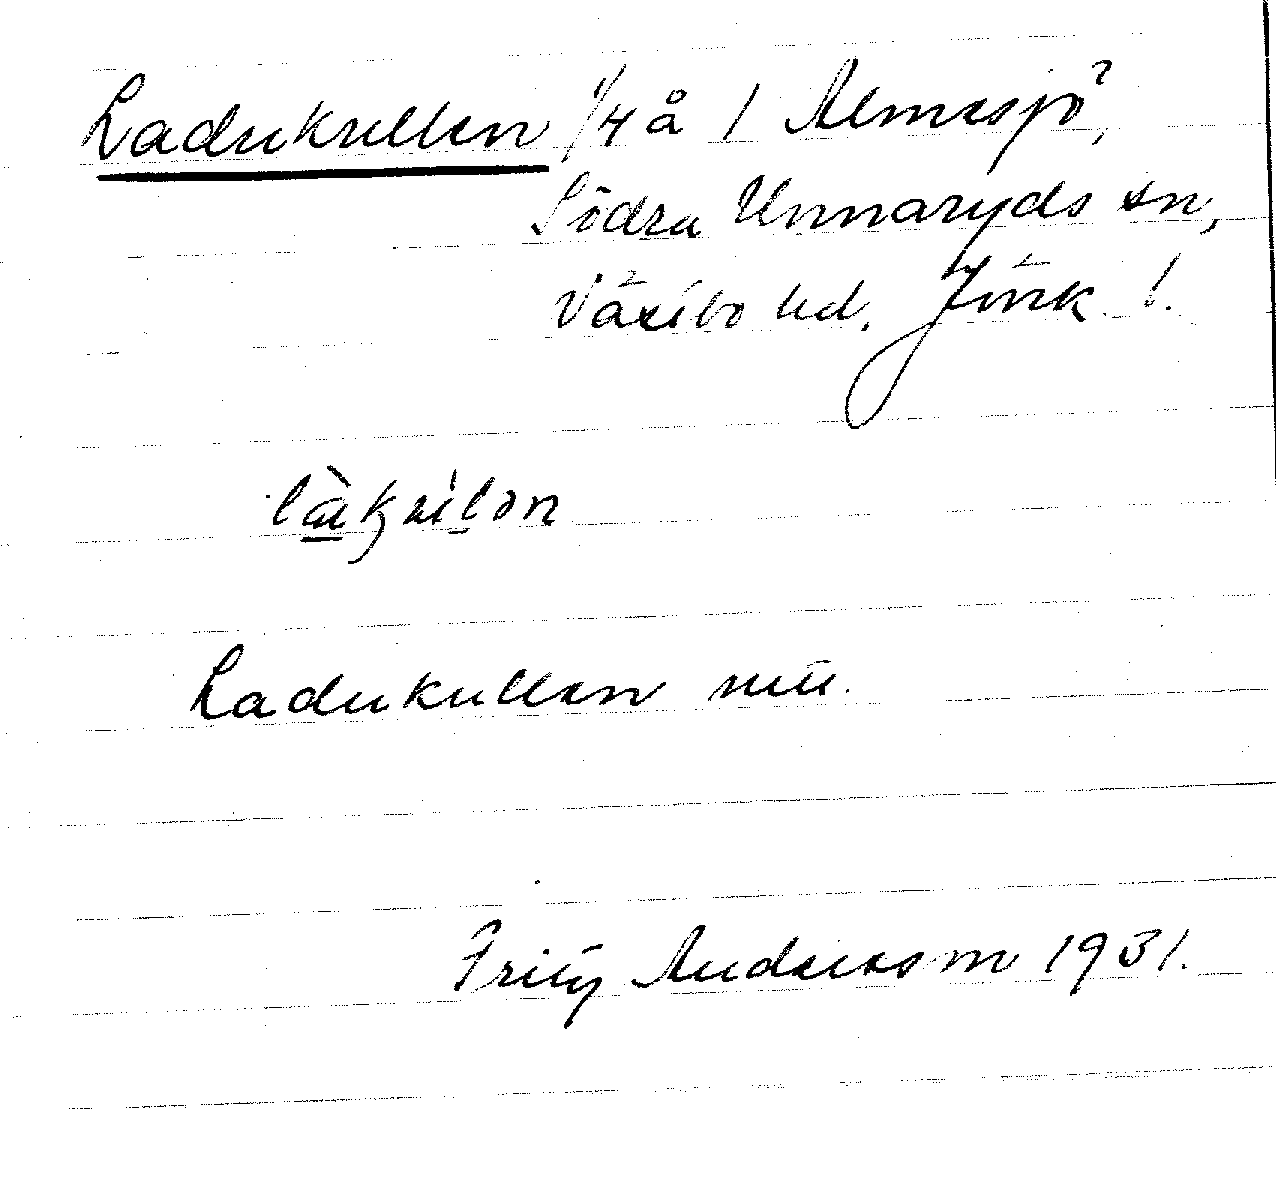 Ladukullen 1/4 å 1 Älmesjö,
Södra Unnaryds sn,
Västbo hd. Jönk. l.
Ladukullen
Fritz Anderson 1931.